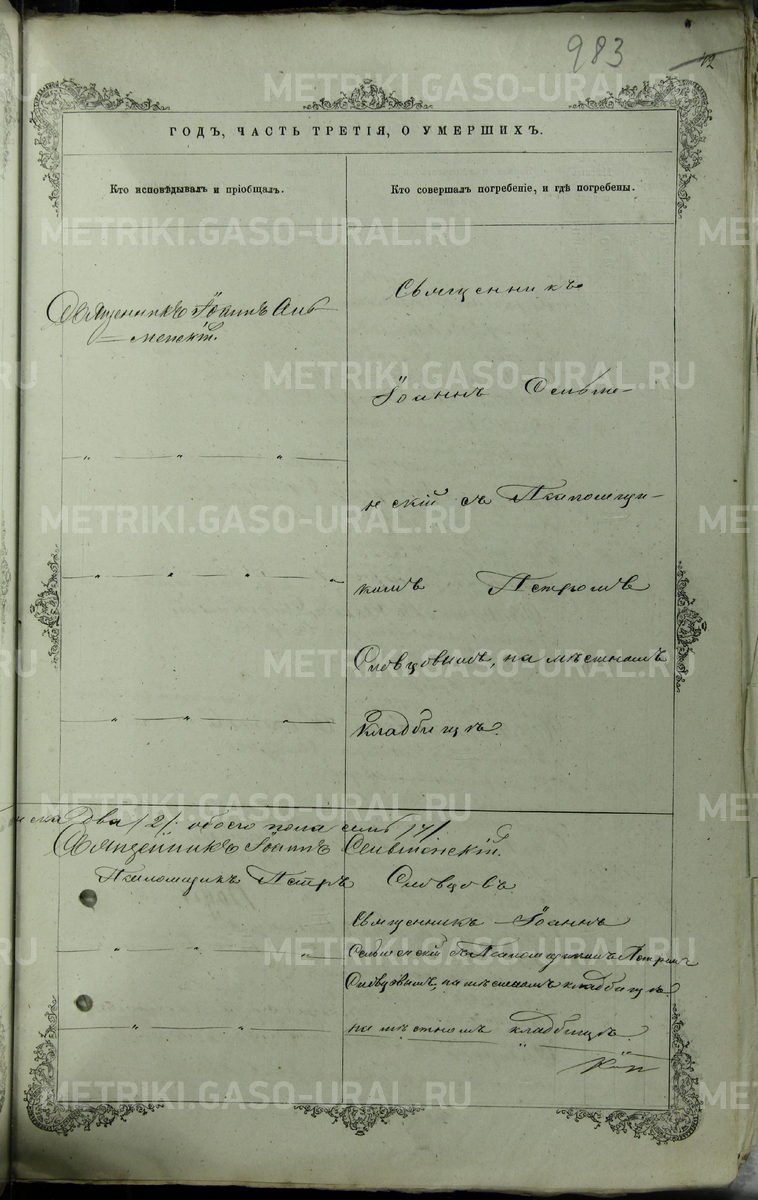 983
42
ГОДЪ, ЧАСТЬ ТРЕТІЯ, О УМЕРШИХЪ.
Кто исповѣдывалъ и пріобщалъ.
Кто совершалъ погребеніе, и гдѣ погребены.
Священникъ Іоаннъ
Священникъ
Іоаннъ Сельме-
нскій съ Псаломщи-
комъ Петромъ
Словцовымъ, на мѣстномъ
кладбищѣ.
два /2/: обоего пола семь /7/
Священникъ Іоаннъ Сельменскій.
Псаломщикъ Петръ Словцовъ.
Священникъ Іоаннъ
Сельменскій съ Псаломщикомъ Петромъ
Словцовымъ, на мѣстномъ кладбищѣ.
на мѣстномъ кладбищѣ.
METRIKI.GASO-URAL.RU